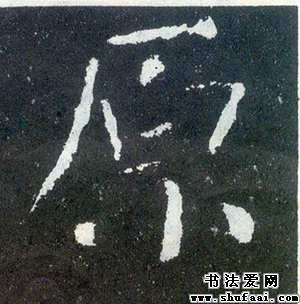 原
书法爱网
www.shufaai.com